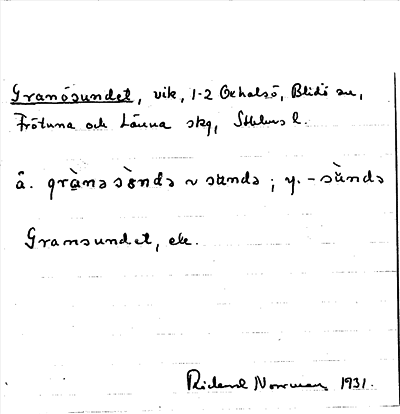 Granösundet, vik, 1-2 Oxhalsö, Blidö sn,
Frötuna och Länna skg, Sthlms l.
å. grànə sòndə ~ sundə ; y. -sùndə
Gransundet, ek.
Rickard Norrman 1931.